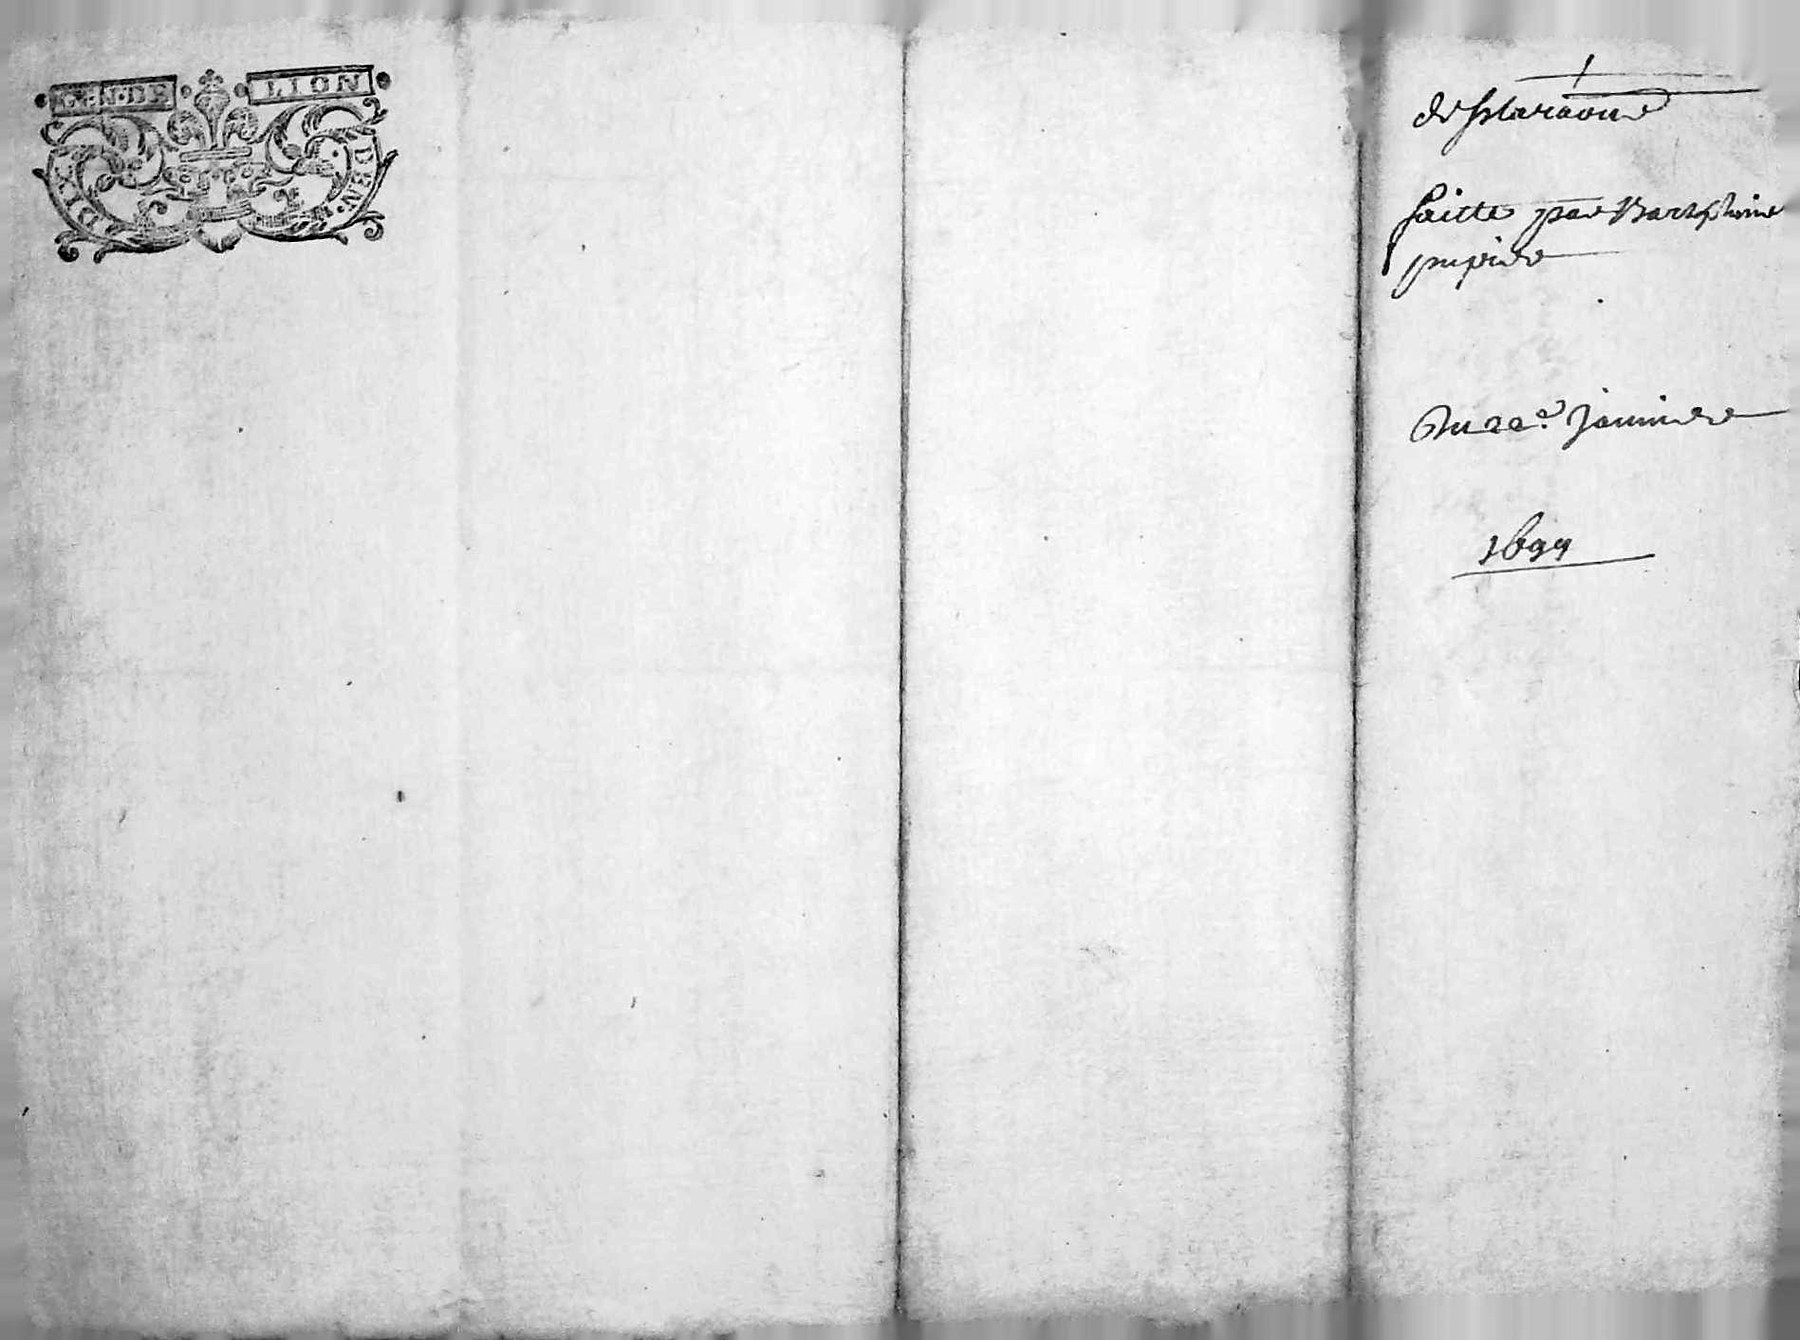 GEN·DE LION
DIX DEN.
desclaraoñ
faitte par Barthelemie
pupier
Du 22e. janvier
1699